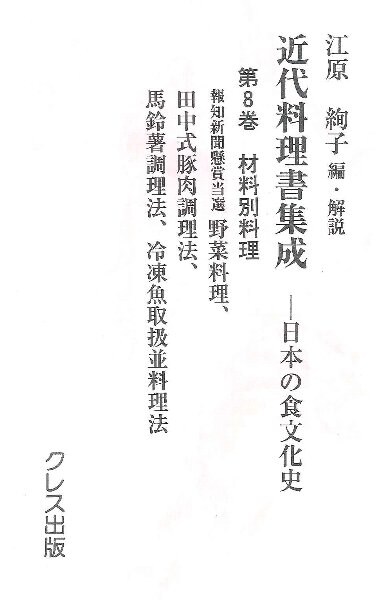 江原　絢子 編・解説
近代料理書集成 ―日本の食文化史
第8巻　材料別料理
報知新聞懸賞当選 野菜料理、
田中式豚肉調理法、
馬鈴薯調理法、冷凍魚取扱並料理法
クレス出版